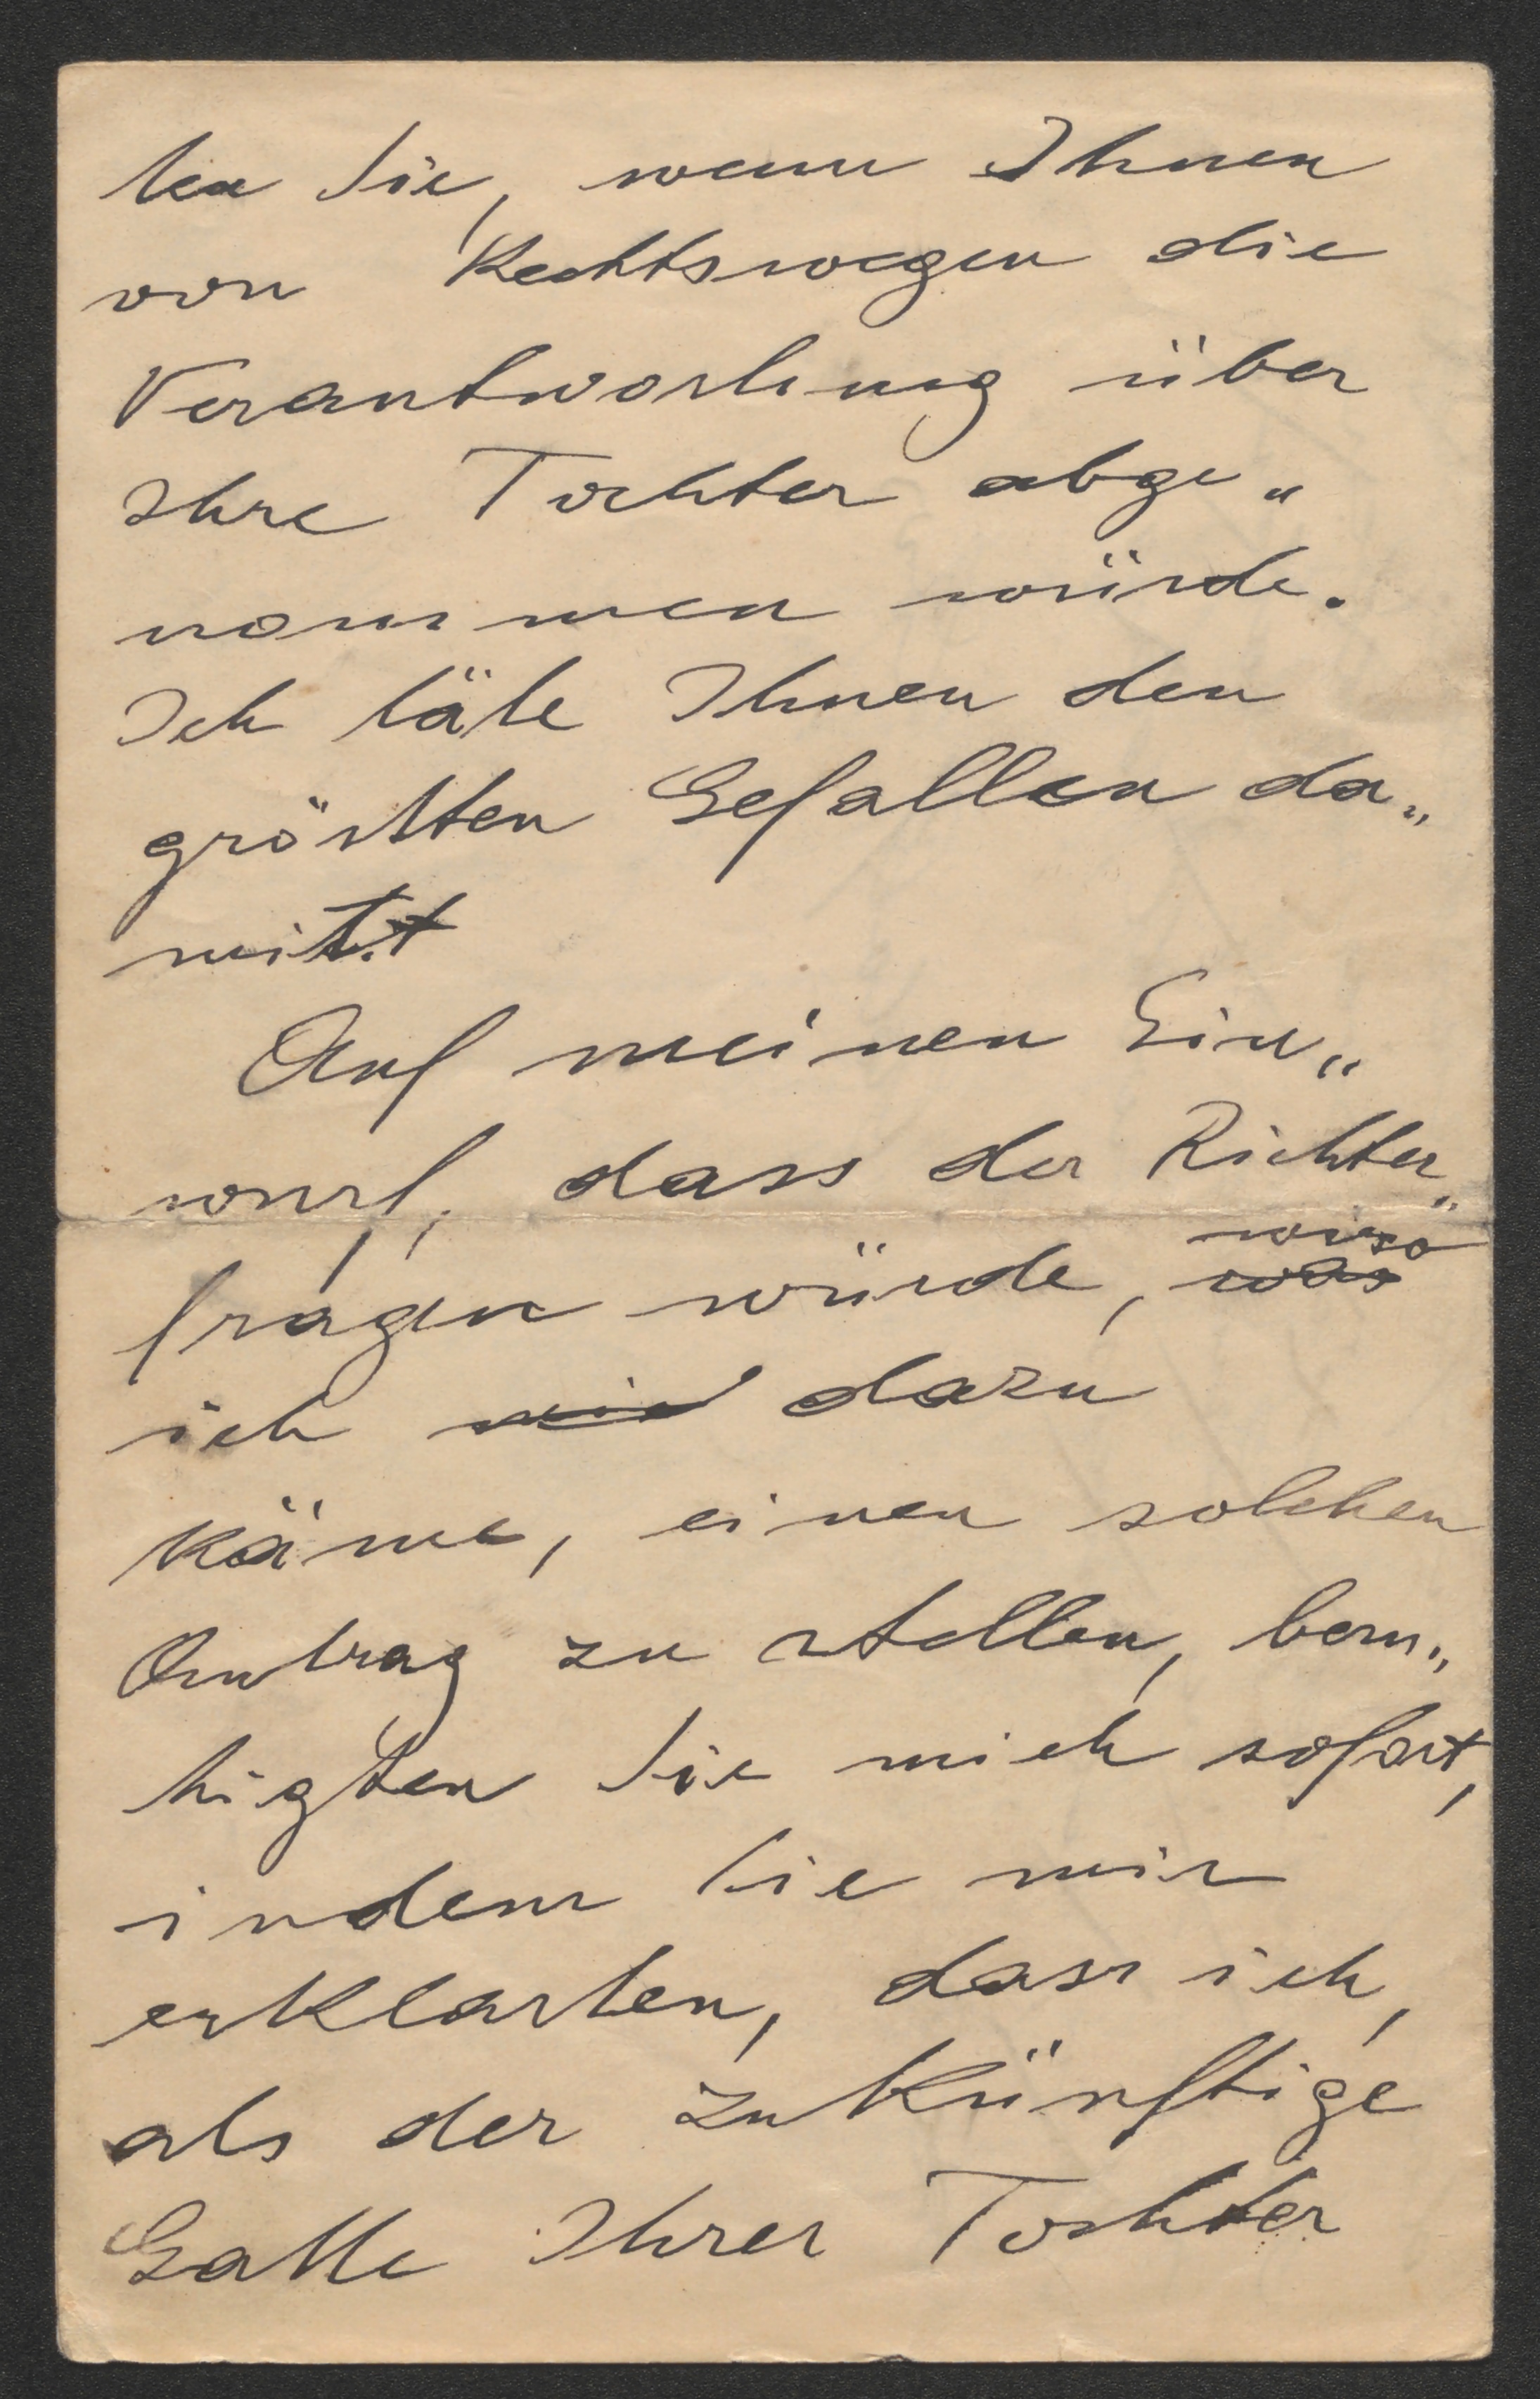 ten Sie, wenn Ihnen
von Rechtswegen die
Verantwortung über
Ihre Tochter abge„
nommen würde.
Ich täte Ihnen den
grössten Gefallen da„
mit.
Auf meinen Ein„
wurf, dass der Richter„
fragen würde, was wieso
ich dazu
käme, einen solchen
Antrag zu stellen, beru„
higten Sie mich sofort,
indem Sie mir
erklarten, dass ich,
als der zukünftige
Gatte Ihrer Tochter